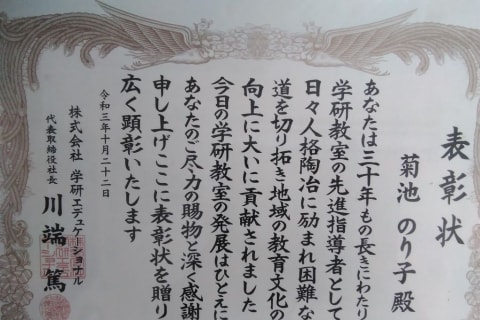 表彰状
菊池 のり子 殿
あなたは三十年もの長きにわたり
学研教室の先進指導者として
日々人格陶冶に励まれ困難な
道を切り拓き地域の教育文化の
向上に大いに貢献されました
今日の学研教室の発展はひとえに
あなたのご尽力の賜物と深く感謝
申し上げここに表彰状を贈り
広く顕彰いたします
令和三年十月二十二日
株式会社 学研エデュケーショナル
代表取締役社長 川端 篤